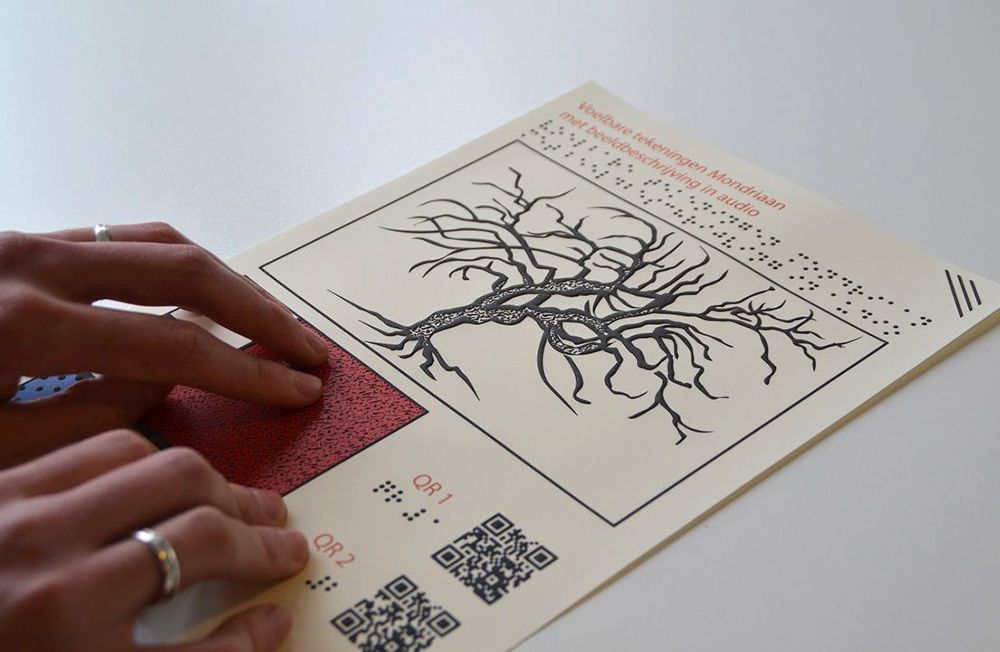 Voelbare tekeningen Mondriaan
met beeldbeschrijving in audio
QR 1
QR 2